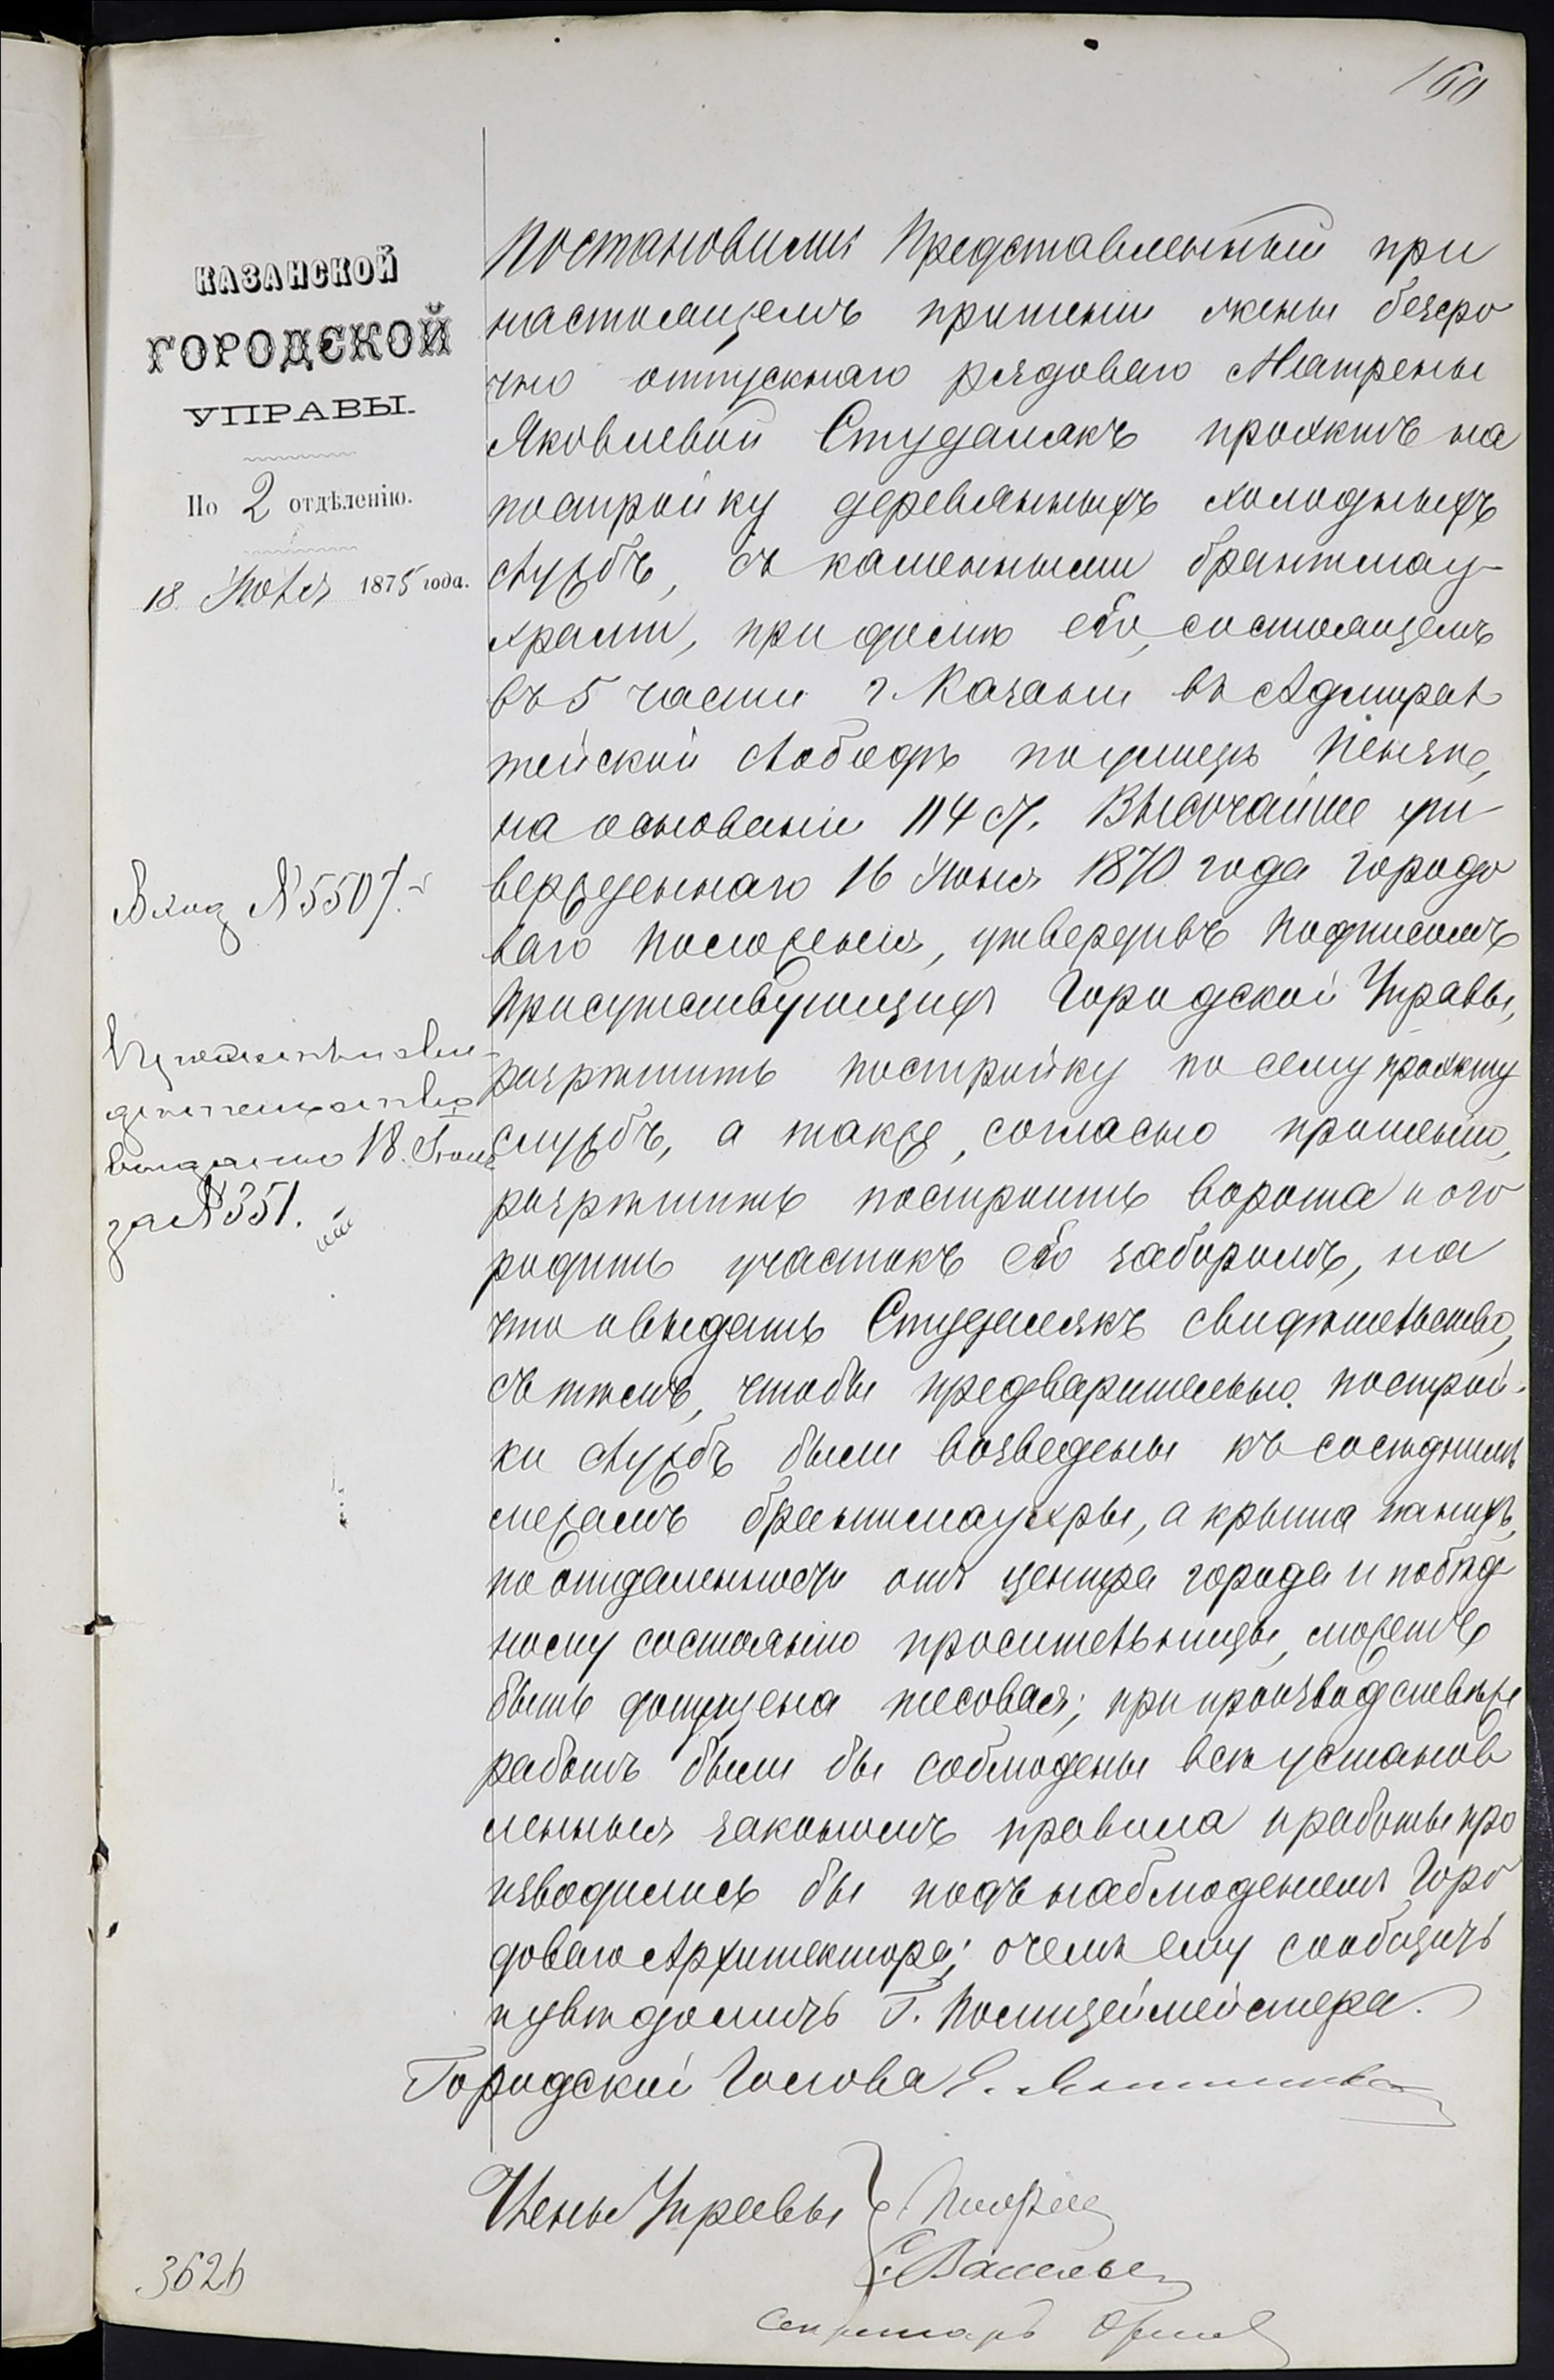 160
КАЗАНСКОЙ
ГОРОДСКОЙ
УПРАВЫ.
По 2 отдѣленію.
18 Июля 1875 года.
Вход №5507.
свидѣтельство
выдано 18 Июля
за №351.
Постановили: Представленный при
настоящемъ прошеніи жены безсро
чно отпускнаго рядоваго Матрены
Яковлевой Студамякъ проэктъ на
постройку деревянныхъ холодныхъ
службъ, съ каменными брантмау-
храми, при домѣ ея, состоящемъ
въ 5 части г. Казани въ Адмирал
тейской слободѣ по улицѣ
на основаніи 114 ст. Высочайше ут
вержденнаго 16 Июня 1870 года городо
ваго положенія, утвердивъ подписомъ
присутствующихъ Городской Управы,
разрѣшить постройку по сему проэкту
службъ, а также, согласно прошенію,
разрѣшить построить ворота и ого
родить участокъ ея заборомъ, на
что и выдать Студамякъ свидѣтельство,
съ тѣмъ, чтобы предварительно построй-
ки службъ были возведены къ сосѣднимъ
межамъ брантмаухры, а крыша на нихъ,
по отдаленности отъ центра города и по бѣд
ному состоянію просительницы, можетъ
быть допущена тесовая; при производствѣ
работъ были бы соблюдены всѣ установ
ленныя закономъ правила и работы про
изводились бы подъ наблюденіемъ Горо
доваго Архитектора; о чемъ ему сообщить
и увѣдомить Г. Полицеймейстера.
Городской Голова
Члены Управы
С. Васильев
Секретарь
3626